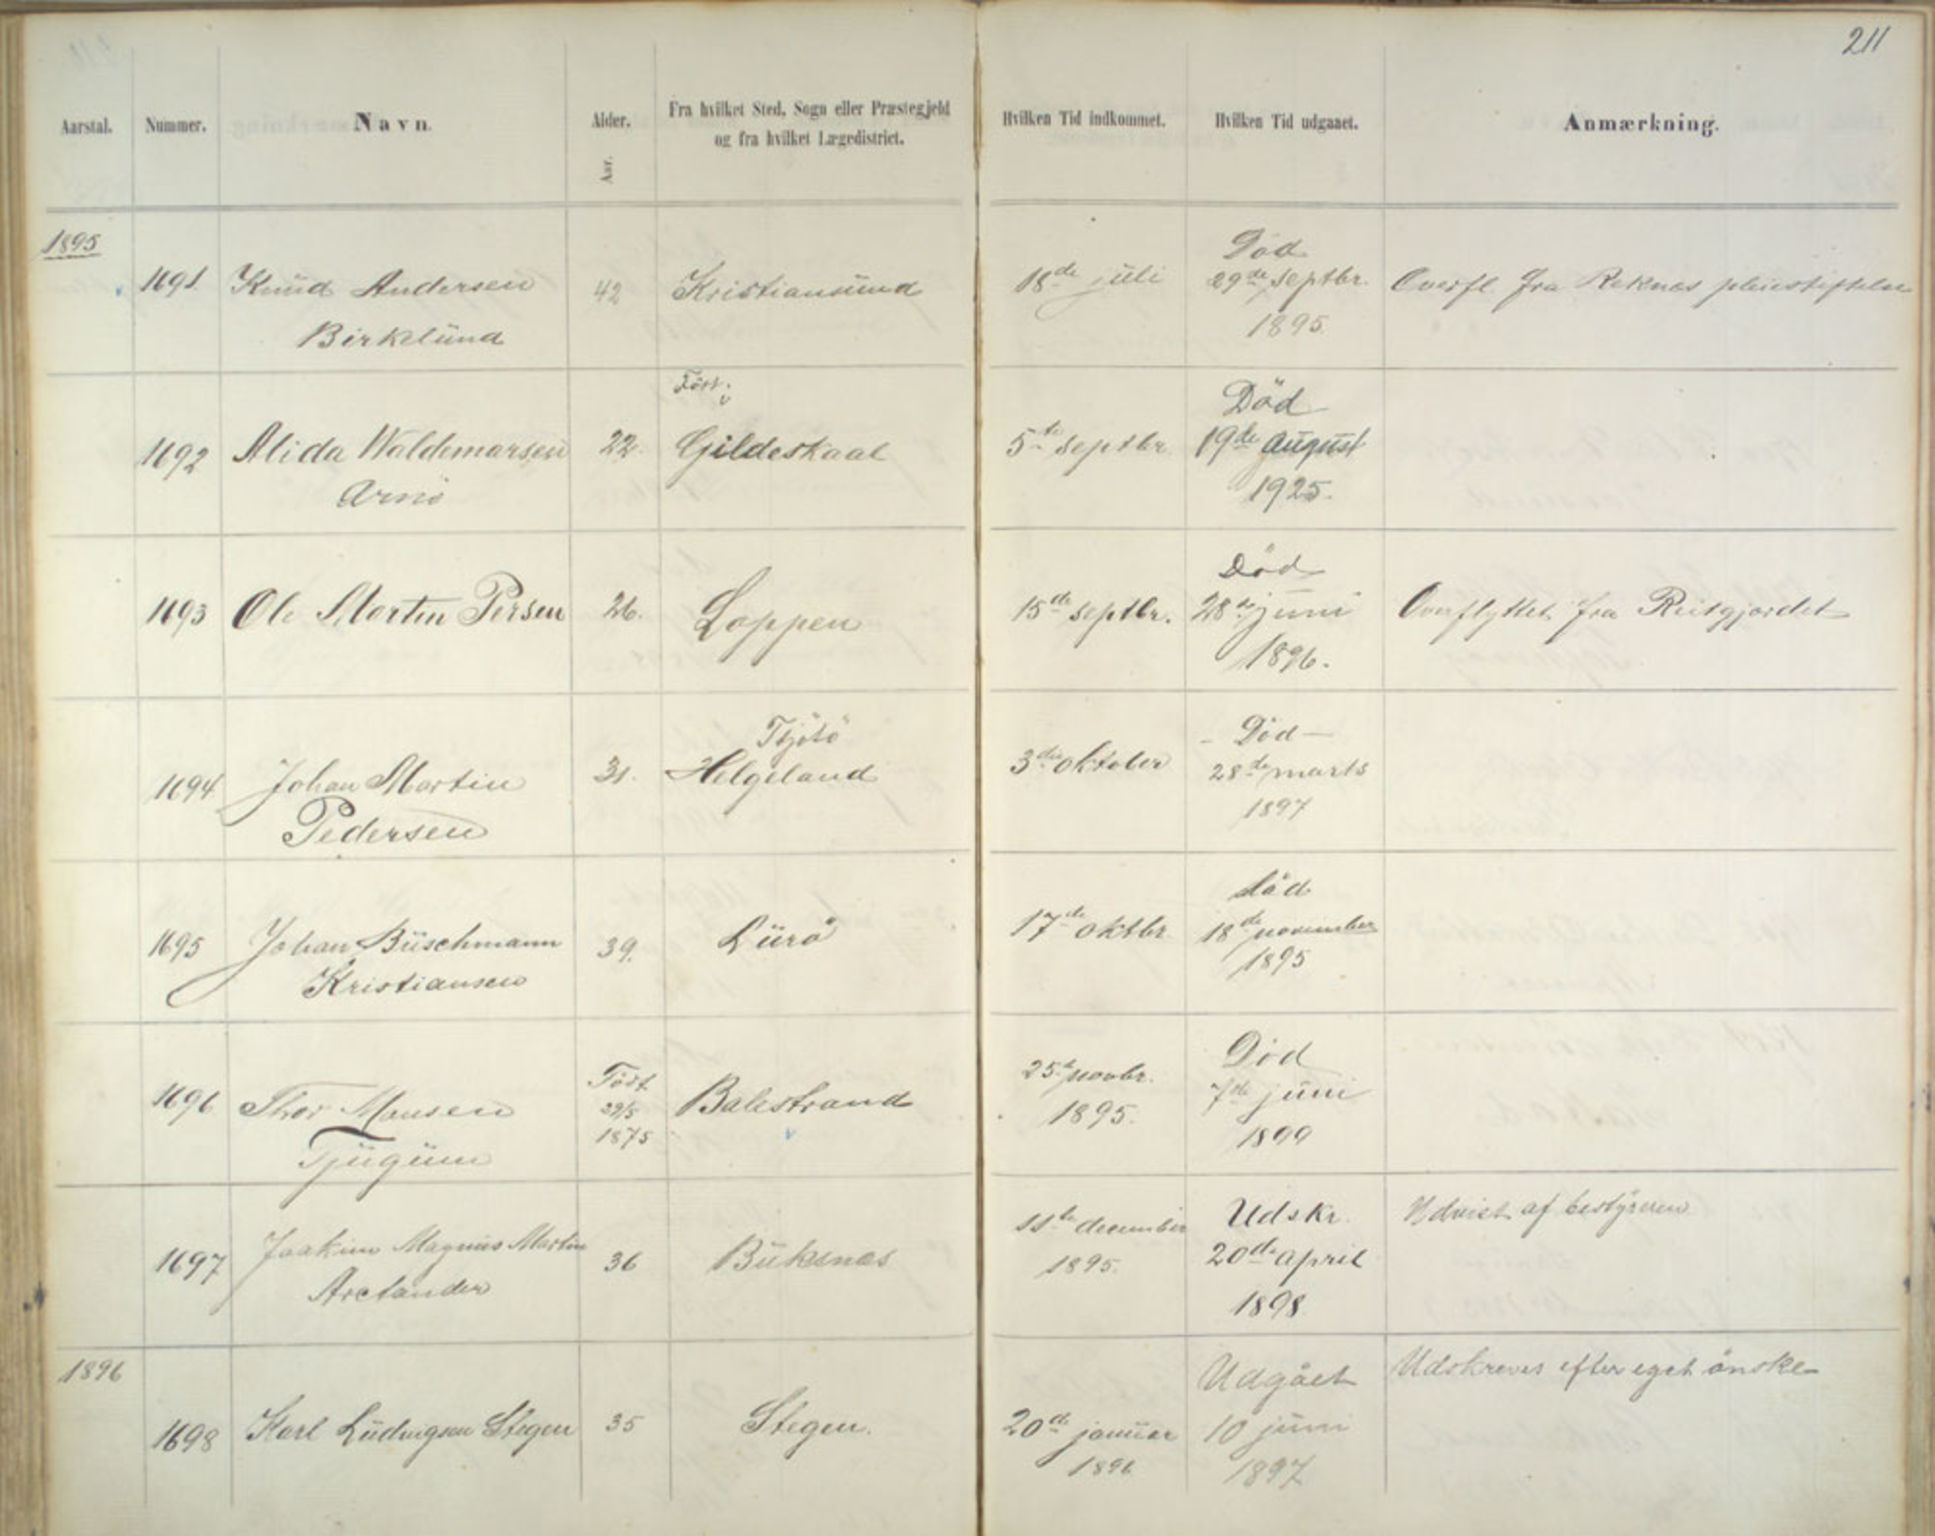 211
Aarstal. Nummer. Navn. Alder. Aar. Fra hvilket Sted, Sogn eller Præstegjeld og fra hvilket Lægedistrict. Hvilken Tid indkommet. Hvilken Tid udgaaet. Anmærkning.
1895
Død
1691 Knud Andersen 42 Kristiansund 18de juli 29de septbr. Overfl fra Reknæs pleiestiftelse
Birkelund 1895
Født i
Død
1692 Alida Waldemarsen 22. Gildeskaal 5te septbr. 19de august
Arnö 1925.
Död
1693 Ole Martin Persen 26. Loppen 15de septbr. 28de juni Overflyttet fra Reitgjerdet
1896.
Tjötö – Död –
1694 Johan Martin 31. Helgeland 3die oktober 28de marts
Pedersen 1897
död
1695 Johan Büschmann 39. Lurö 17de oktbr. 18de november
Kristiansen 1895
Född Död
1696 Thor Monsen 29/5 Balestrand 25de novbr. 7de juni
Tjugum 1875 1895. 1899
Udskr. Udvist af bestyreren
1697 Joakim Magnus Martin 36 Buksnæs 11te december 20de april
Arctander 1895. 1898
1896 Udgået Udskreves efter eget önske
1698 Karl Ludvigsen Stegen 35 Stegen. 20de januar 10 juni
1896 1897